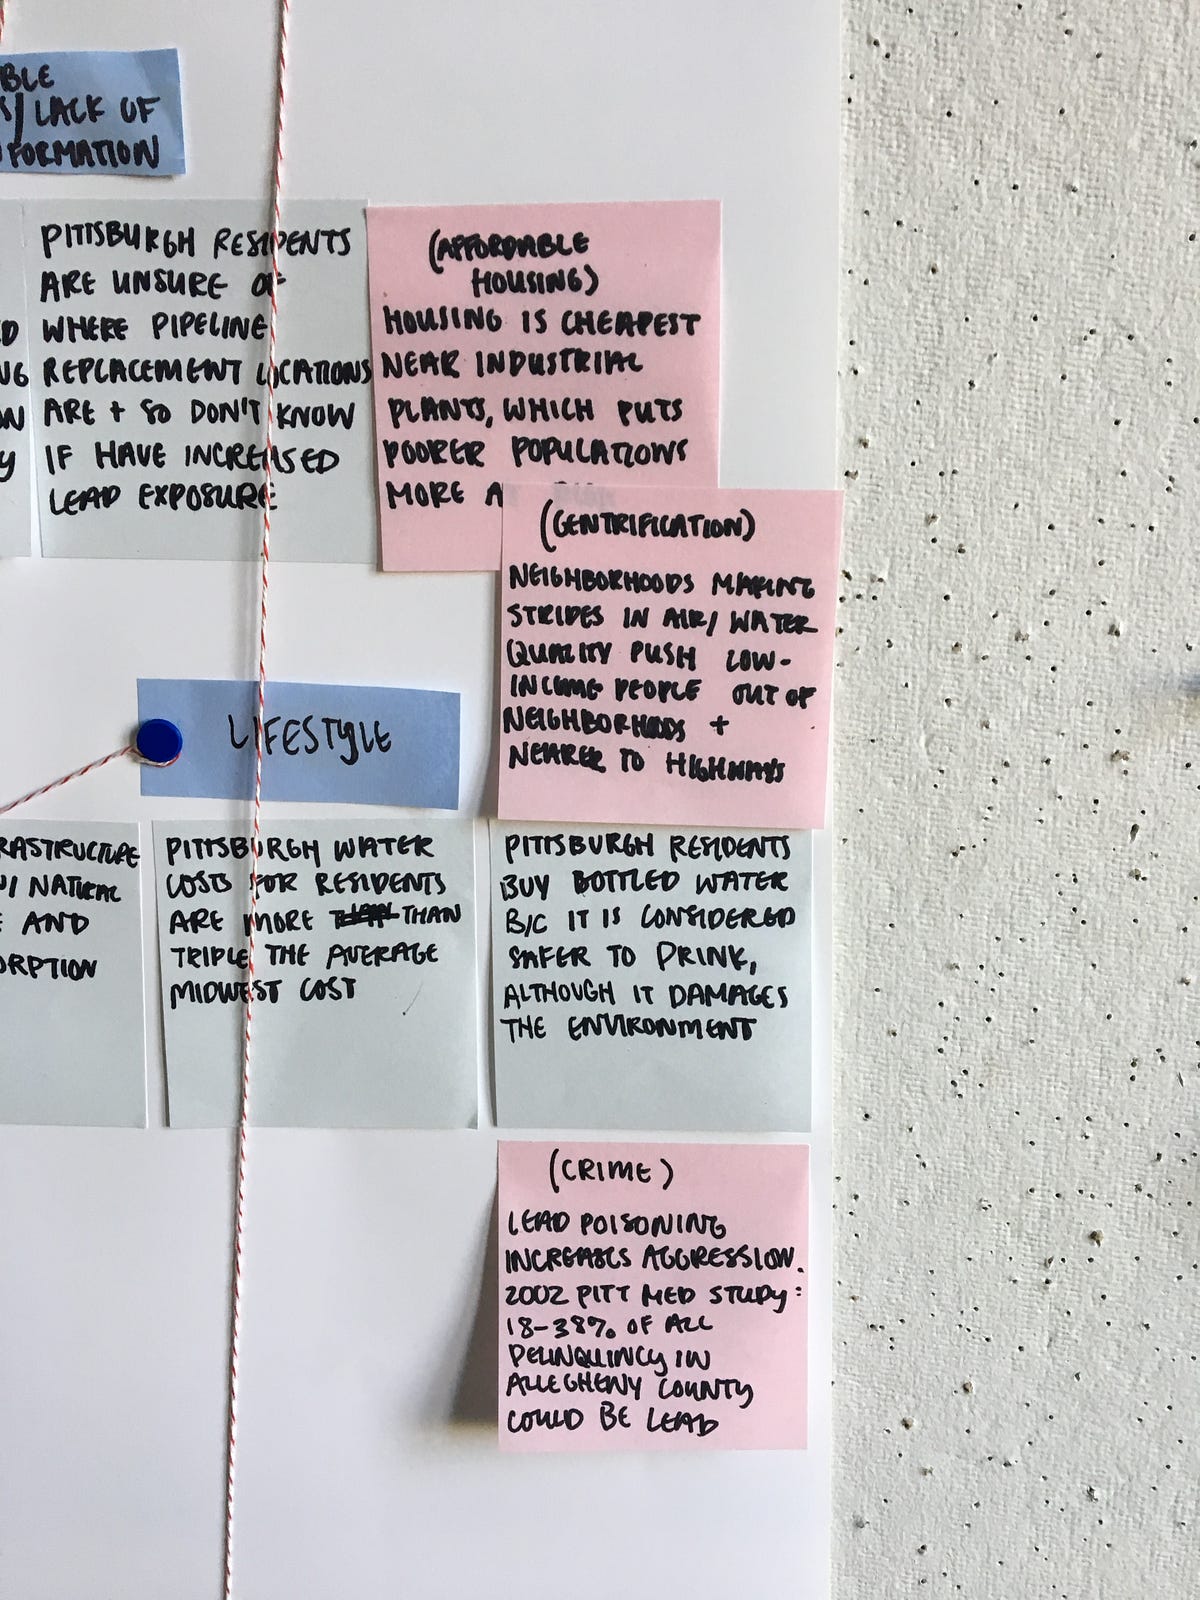 BLE
S/ LACK OF
FORMATION
D
NG
ON
Y
PITTSBURGH RESIDENTS
ARE UNSURE OF
WHERE PIPELINE
REPLACEMENT LOCATIONS
ARE + SO DON'T KNOW
IF HAVE INCREASED
LEAD EXPOSURE
(AFFORDABLE
HOUSING)
HOUSING IS CHEAPEST
NEAR INDUSTRIAL
PLANTS, WHICH PUTS
POORER POPULATIONS
MORE A
(GENTRIFICATION)
NEIGHBORHOODS MAKING
STRIDES IN AIR/WATER
QUALITY PUSH LOW-
INCOME PEOPLE OUT OF
NEIGHBORHOODS +
NEARER TO HIGHWAYS
LIFESTYLE
RASTRUCTURE
W/ NATURAL
E AND
ORPTION
PITTSBURGH WATER
COSTS FOR RESIDENTS
ARE MORE THAN
TRIPLE THE AVERAGE
MIDWEST COST
PITTSBURGH RESIDENTS
BUY BOTTLED WATER
B/C IT IS CONSIDERED
SAFER TO DRINK,
ALTHOUGH IT DAMAGES
THE ENVIRONMENT
(CRIME)
LEAD POISONING
INCREASES AGGRESSION.
2002 PITT MED STUDY:
18-38% OF ALL
DELINQUINCY IN
ALLEGHENY COUNTY
COULD BE LEAD